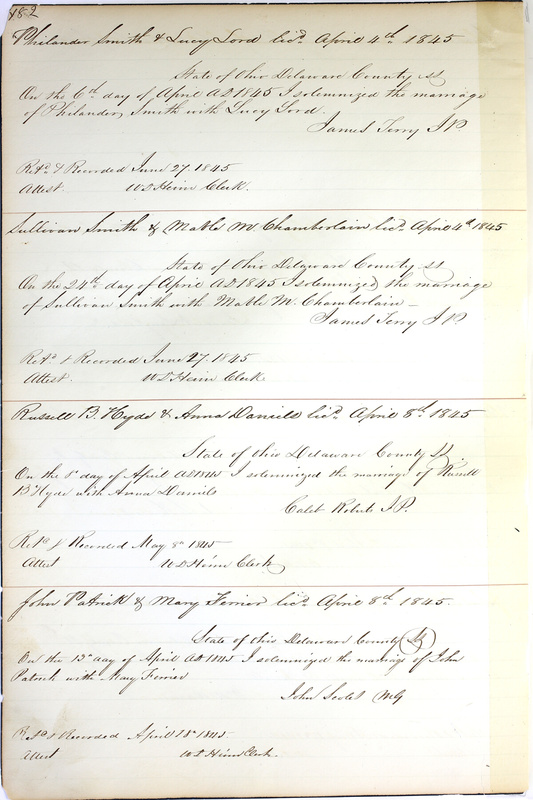 482
Philander Smith & Lucy Lord licd. April 4th 1845
State of Ohio Delaware County ss
On the 6th day of April AD 1845 I solemnized the marriage
of Philander Smith with Lucy Lord.
James Terry J P.
Retd & Recorded June 27. 1845
Attest. W D Heim Clerk.
Sullivan Smith & Mable M. Chamberlain licd. April 4th 1845
State of Ohio Delaware County ss
On the 24th day of April AD 1845 I solemnized the marriage
of Sullivan Smith with Mable M. Chamberlain —
James Terry J P.
Retd & Recorded June 27. 1845
Attest. W D Heim Clerk
Russell B. Hyde & Anna Daniels licd. April 8th 1845
State of Ohio Delaware County ss.
On the 8 day of April AD 1845 I solemnized the marriage of Russell
B Hyde with Anna Daniels
Caleb Roberts J P.
Retd & Recorded May 8th 1845
Attest W D Heim Clerk
John Patrick & Mary Ferrier licd. April 8th 1845.
State of Ohio Delaware County ss
On the 13th day of April AD 1845 I solemnized the marriage of John
Patrick with Mary Ferrier
John MG
Retd & Recorded April 18th 1845
Attest W D Heim Clerk.